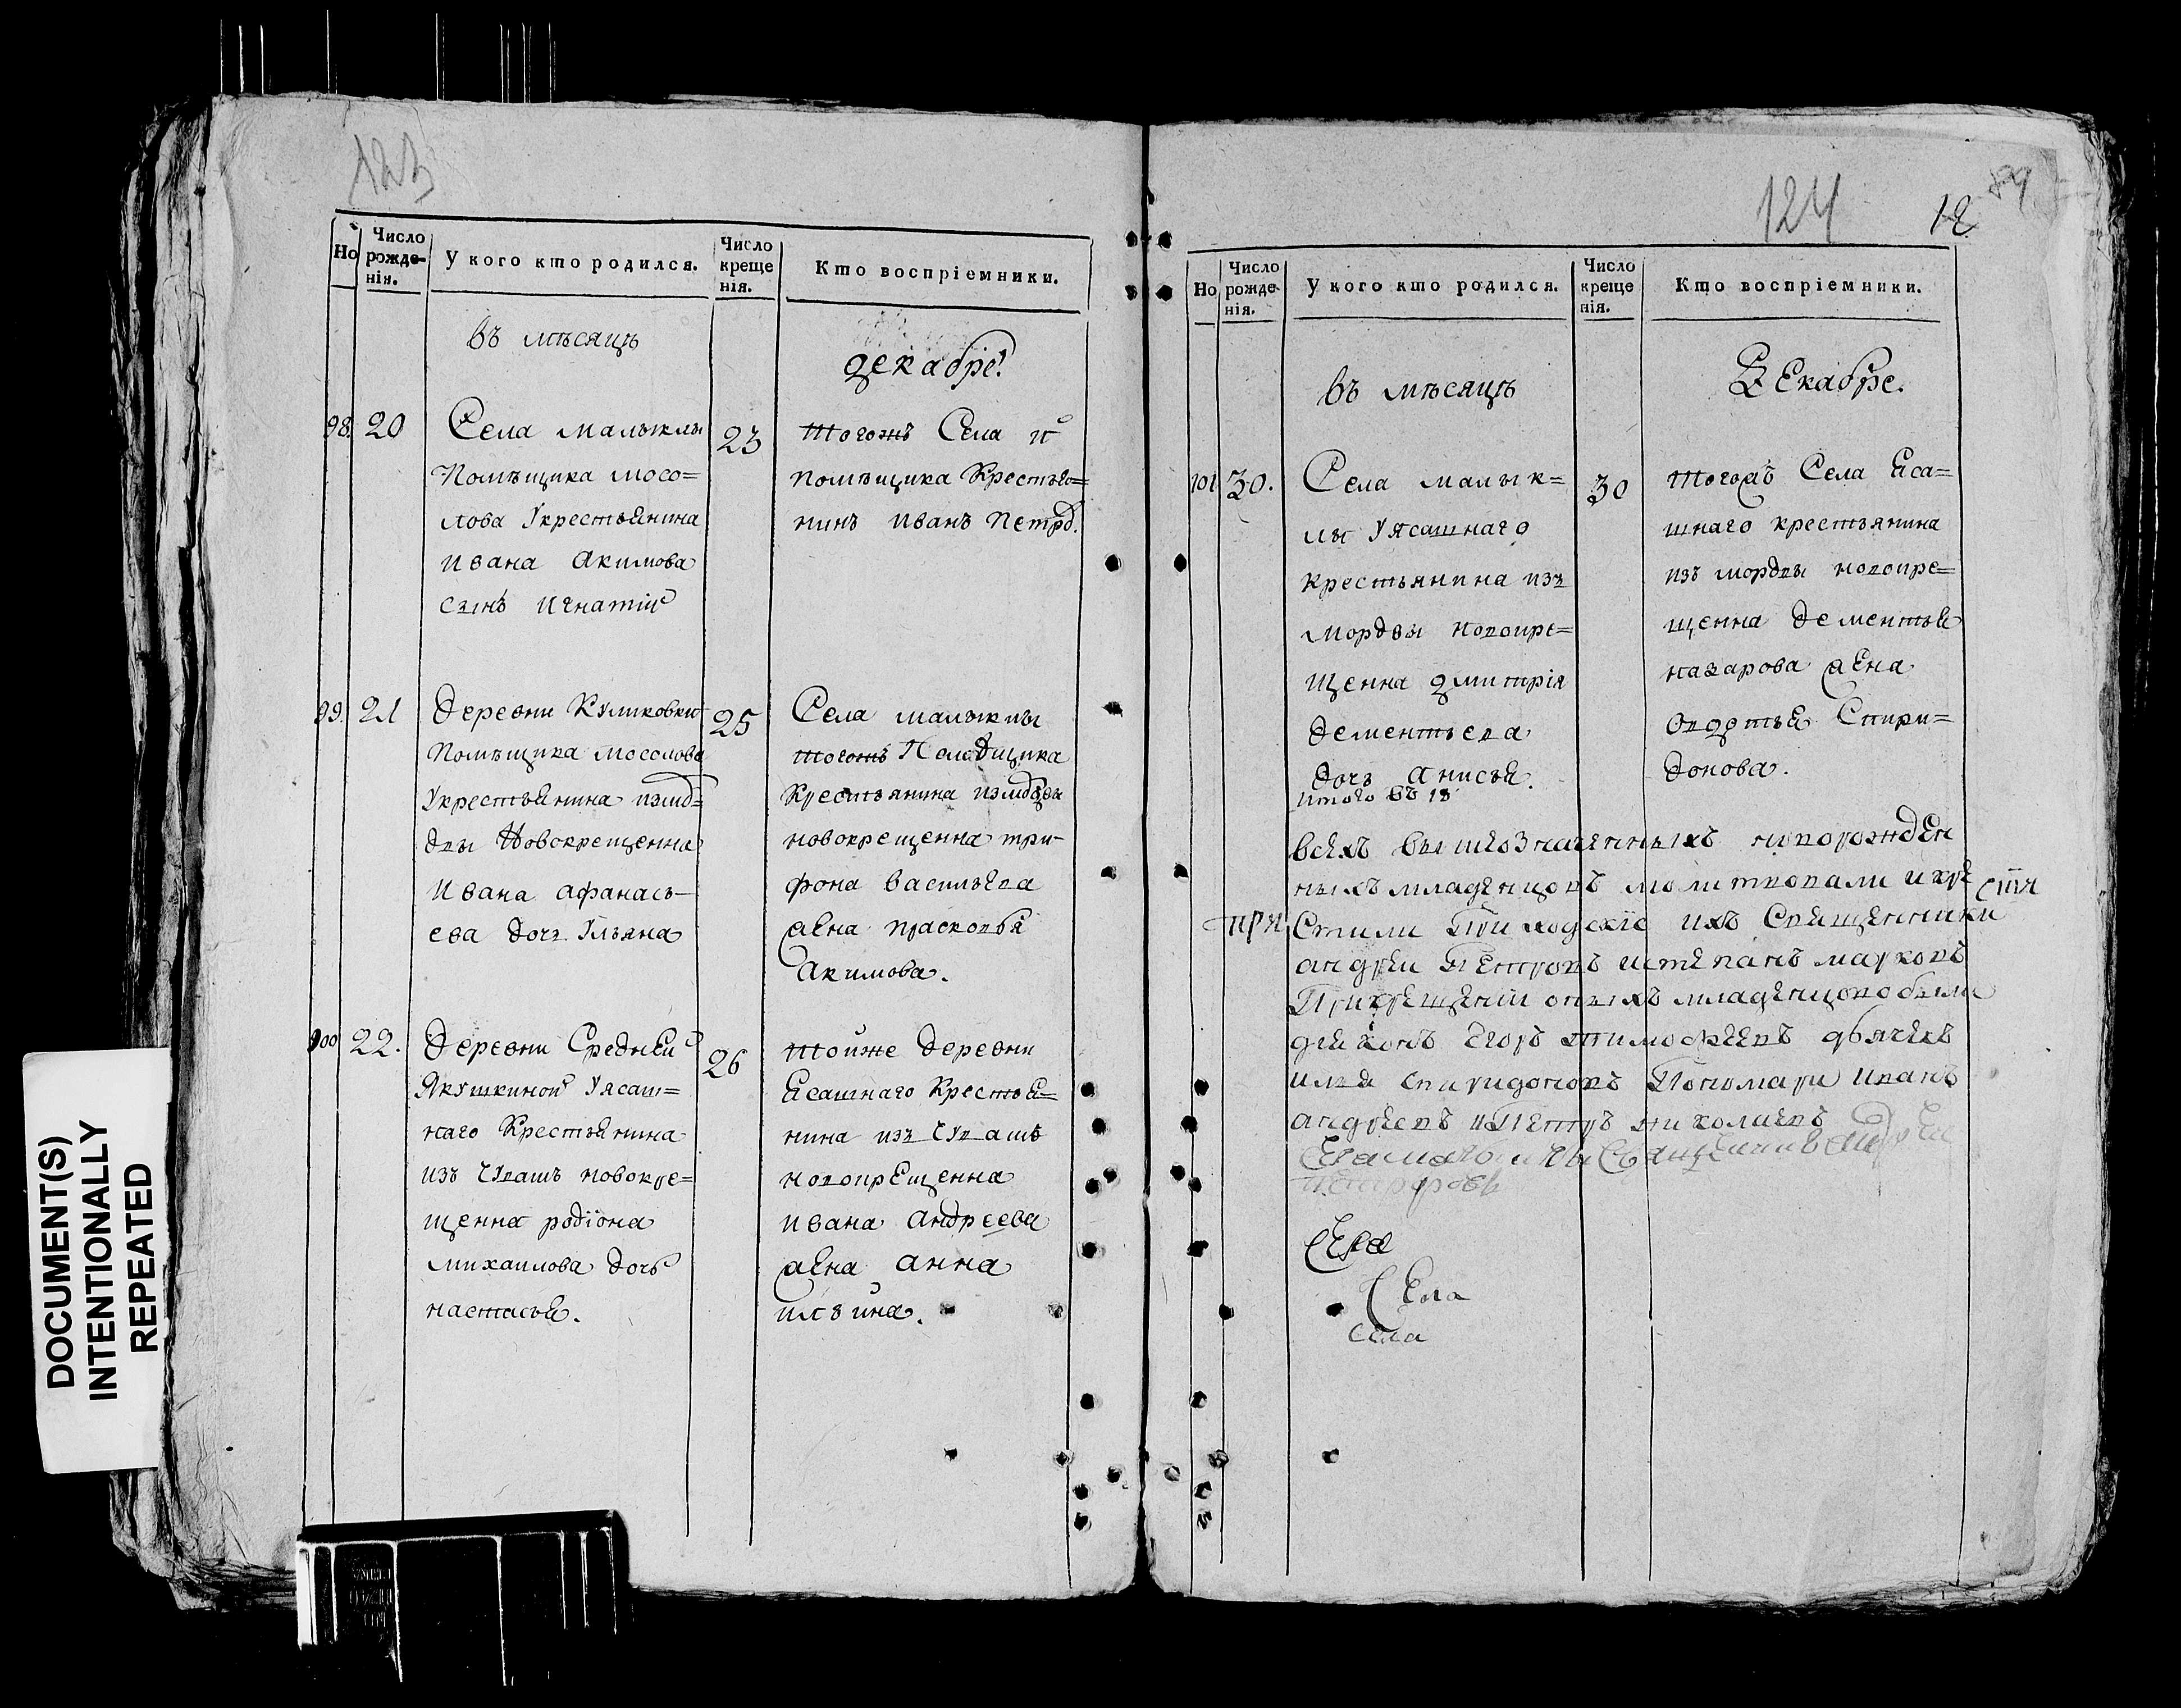 DOCUMENT(S)
INTENTIONALLY
REPEATED
123
Но
Число рожде- нія.
У кого кто родился.
Число креще нія.
Кто воспріемники.
въ мѣсяцѣ
декабрѣ
98. 20
Села малыклы
Помѣщика мосо=
лова Укрестьянина
Ивана Акимова
сынъ игнатій
23
Тогожъ Села и
помѣщика Крестья=
нинъ иванъ Петро.
99. 21
деревни Куликовки
Помѣщика мосолова
Укрестьянина измо=
двы Новокрещенна
Ивана афанась-
ева дочь Ульяна
25
Села малыклы
тогожъ Помѣщика
Крестьянина
новокрещенна три-
фона васильева
жена прасковья
Акимова.
100 22.
деревни Средней
Якушкиной Уясаш=
наго Крестьянина
изъ Чувашъ новокре=
щенна родіона
михаилова дочь
настасья.
26
тойже деревни
Ясашнаго Крестья=
нина изъ Чувашъ
новокрещенна
ивана андреева
жена анна
ильина.
124
12
Но
Число рожде- нія.
У кого кто родился.
Число креще нія.
Кто воспріемники.
въ мѣсяцѣ
Декабре.
101 30.
Села малык=
лы Уясашнаго
крестьянина изъ
мордвы новокре=
щенна дмитрія
дементьева
дочь анисья.
30
Тогожъ Села Яса=
шнаго крестьянина
изъ мордвы новокре=
щенна дементья
назарова жена
овдотья Спири=
донова.
итого въ 18
всехъ вышеозначенныхъ новорожден
ныхъ младенцовъ молитвовали икре
Стили Приходскіе ихъ Священники
андрей Петровъ истепанъ марковъ
Прикрещеніи оныхъ младенцовъ были
дьяконъ Егоръ тимофеевъ дьячекъ
илья спиридоновъ Пономари иванъ
андреевъ иПетръ николаевъ
Села
Села
села